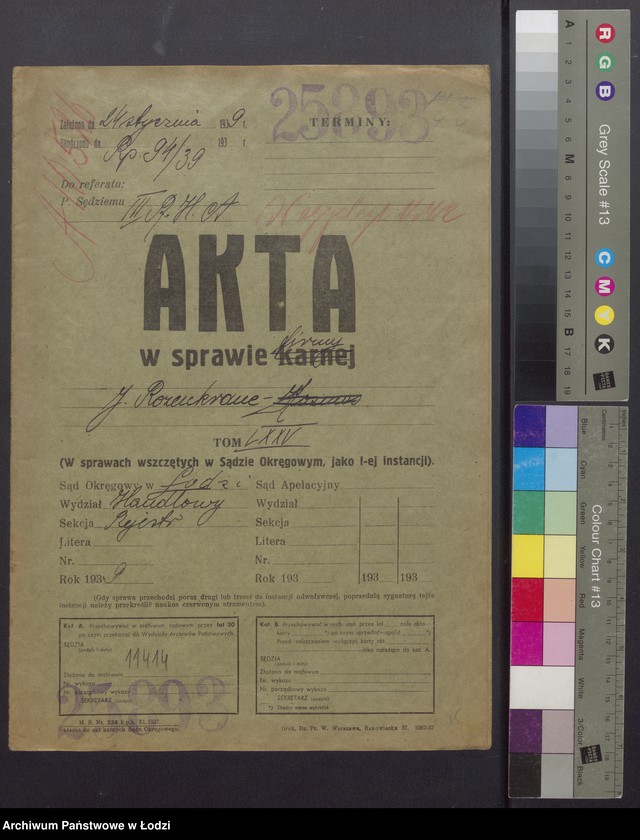 25893
Założono dn. 24 stycznia 1939 r.
TERMINY:
Ukończono dn. 193 r.
Rp. 94/39
Do referatu:
P. Sędziemu III R.H. A
AKTA
w sprawie karnej firmy
J. Rozenkranc -
TOM LXXV
(W sprawach wszczętych w Sądzie Okręgowym, jako I-ej instancji).
Sąd Okręgowy w Łodzi Sąd Apelacyjny
Wydział Handlowy Wydział
Sekcja Rejestr Sekcja
Litera Litera
Nr. Nr.
Rok 1939 Rok 193 193 193
(Gdy sprawa przechodzi poraz drugi lub trzeci do instancji odwoławczej, poprzednią sygnaturę tejże
instancji należy przekreślić naukos czerwonym atramentem).
Kat. A. Przechowywać w archiwum sądowem przez lat 30
po czym przekazać dla Wydziału Archiwów Państwowych.
SĘDZIA
(podpis i data)
11414
Złożono do archiwum
Nr. wykazu
Nr. porządkowy wykazu
SEKRETARZ (podpis)
Kat. B. Przechowywać w arch. sąd. przez lat całe akta
karty *) po czym sprzedać-wydać *)
Przed zniszczeniem wyłączyć karty akt
jako należące do kat. A.
SĘDZIA
(podpis i data)
Złożono do archiwum
Nr. wykazu
Nr. porządkowy wykazu
SEKRETARZ (podpis)
*) Zbędne wyrazy wykreślić
25893
M. S. Nr.
Okładka do akt karnych Sądu Okręgowego.
Druk. Dz. Pr. W. Warszawa, Rakowiecka 37.
Grey Scale #13
R G B C M Y K
A 1 2 3 4 5 6 M 8 9 10 11 12 13 14 15 B 17 18 19
Colour Chart #13
Blue Cyan Green Yellow Red Magenta White 3-Color Black
Centimetres Inches
Archiwum Państwowe w Łodzi